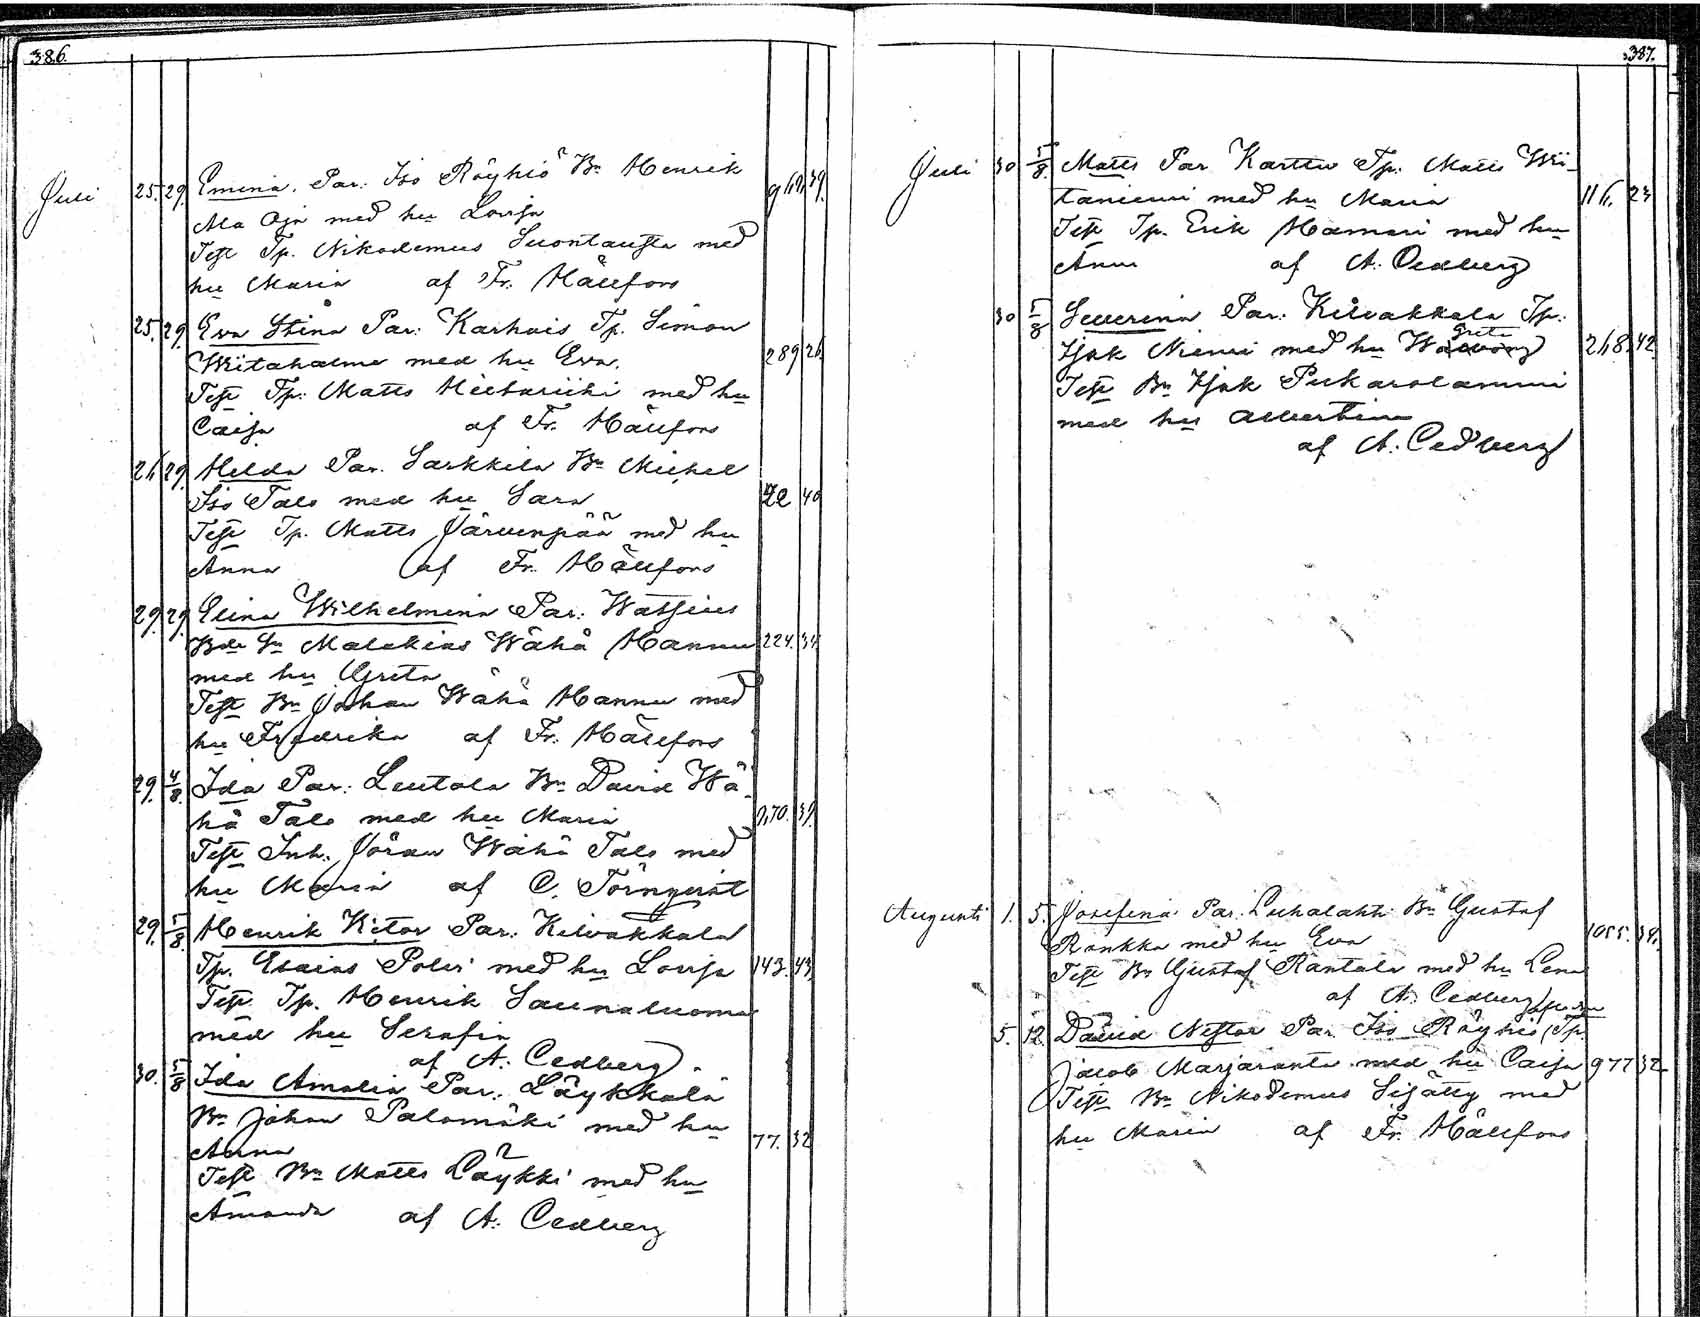 386.
Juli 25. 29. Emina. Par: Iso Röyhiö Bn Henrik
Ala Oja med hu Lovisa 39.
Test Tp. Nikodemus Luontausta med
hu Maria af Fr. Hällfors
25. 29. Eva Stina Par: Karhais Tp. Simon
Wiitahalme med hu Eva. 289 26.
Test Tp: Matts med hu
Caisa af Fr. Hällfors
26 29. Hilda Par. Sarkkila Bn Michel
Iso Talo med hu Sara 72 40
Test Tp. Matts Järvenpää med hu
Anna af Fr. Hällfors
29. 29. Elina Wilhelmina Par: Watjus
Bde Sn Malakias Wähä Hannu 224. 34
med hu Greta
Test Bn Johan Wähä Hannu med
hu Fredrika af Fr. Hällfors
29. 4/8. Ida Par: Leutola Bn David Wä-
hä Talo med hu Maria 39.
Test Inh. Jöran Wähä Talo med
hu Maria af C. Törnqvist
29. 5/8 Henrik Par: Kilvakkala
Tp. Esaias med hu Lovisa 143. 43
Test Tp. Henrik Saunaluoma
med hu Serafia
af A. Cedberg.
30. 5/8 Ida Amalia Par. Läykkälä
Bn Johan Palomäki med hu
Anna 77. 32
Test Bn Matts Läykki med hu
Amanda af A. Cedberg
387.
Juli 30 5/8. Matts Par. Karttu Tp. Matts Wii-
taniemi med hu Maria 116. 23
Test Tp. Erik Hamari med hu
Anna af A. Cedberg
30 5/8 Severina Par: Kilvakkala Tp.
Greta
Isak Niemi med hu 268. 42.
Test Bn Isak
med hu Albertina
af A. Cedberg
Augusti 1. 5. Josefina Par. Luhalahti Bn Gustaf
Rankka med hu Eva 1055. 38.
Test Bn Gustaf Rantala med hu Lena
af A. Cedberg
5. 12. David Nestor Par Iso Röyhiö Tp.
Jacob Marjaranta med hu Caisa 977 32
Test Bn Nikodemus Sijätty med
hu Maria af Fr. Hällfors